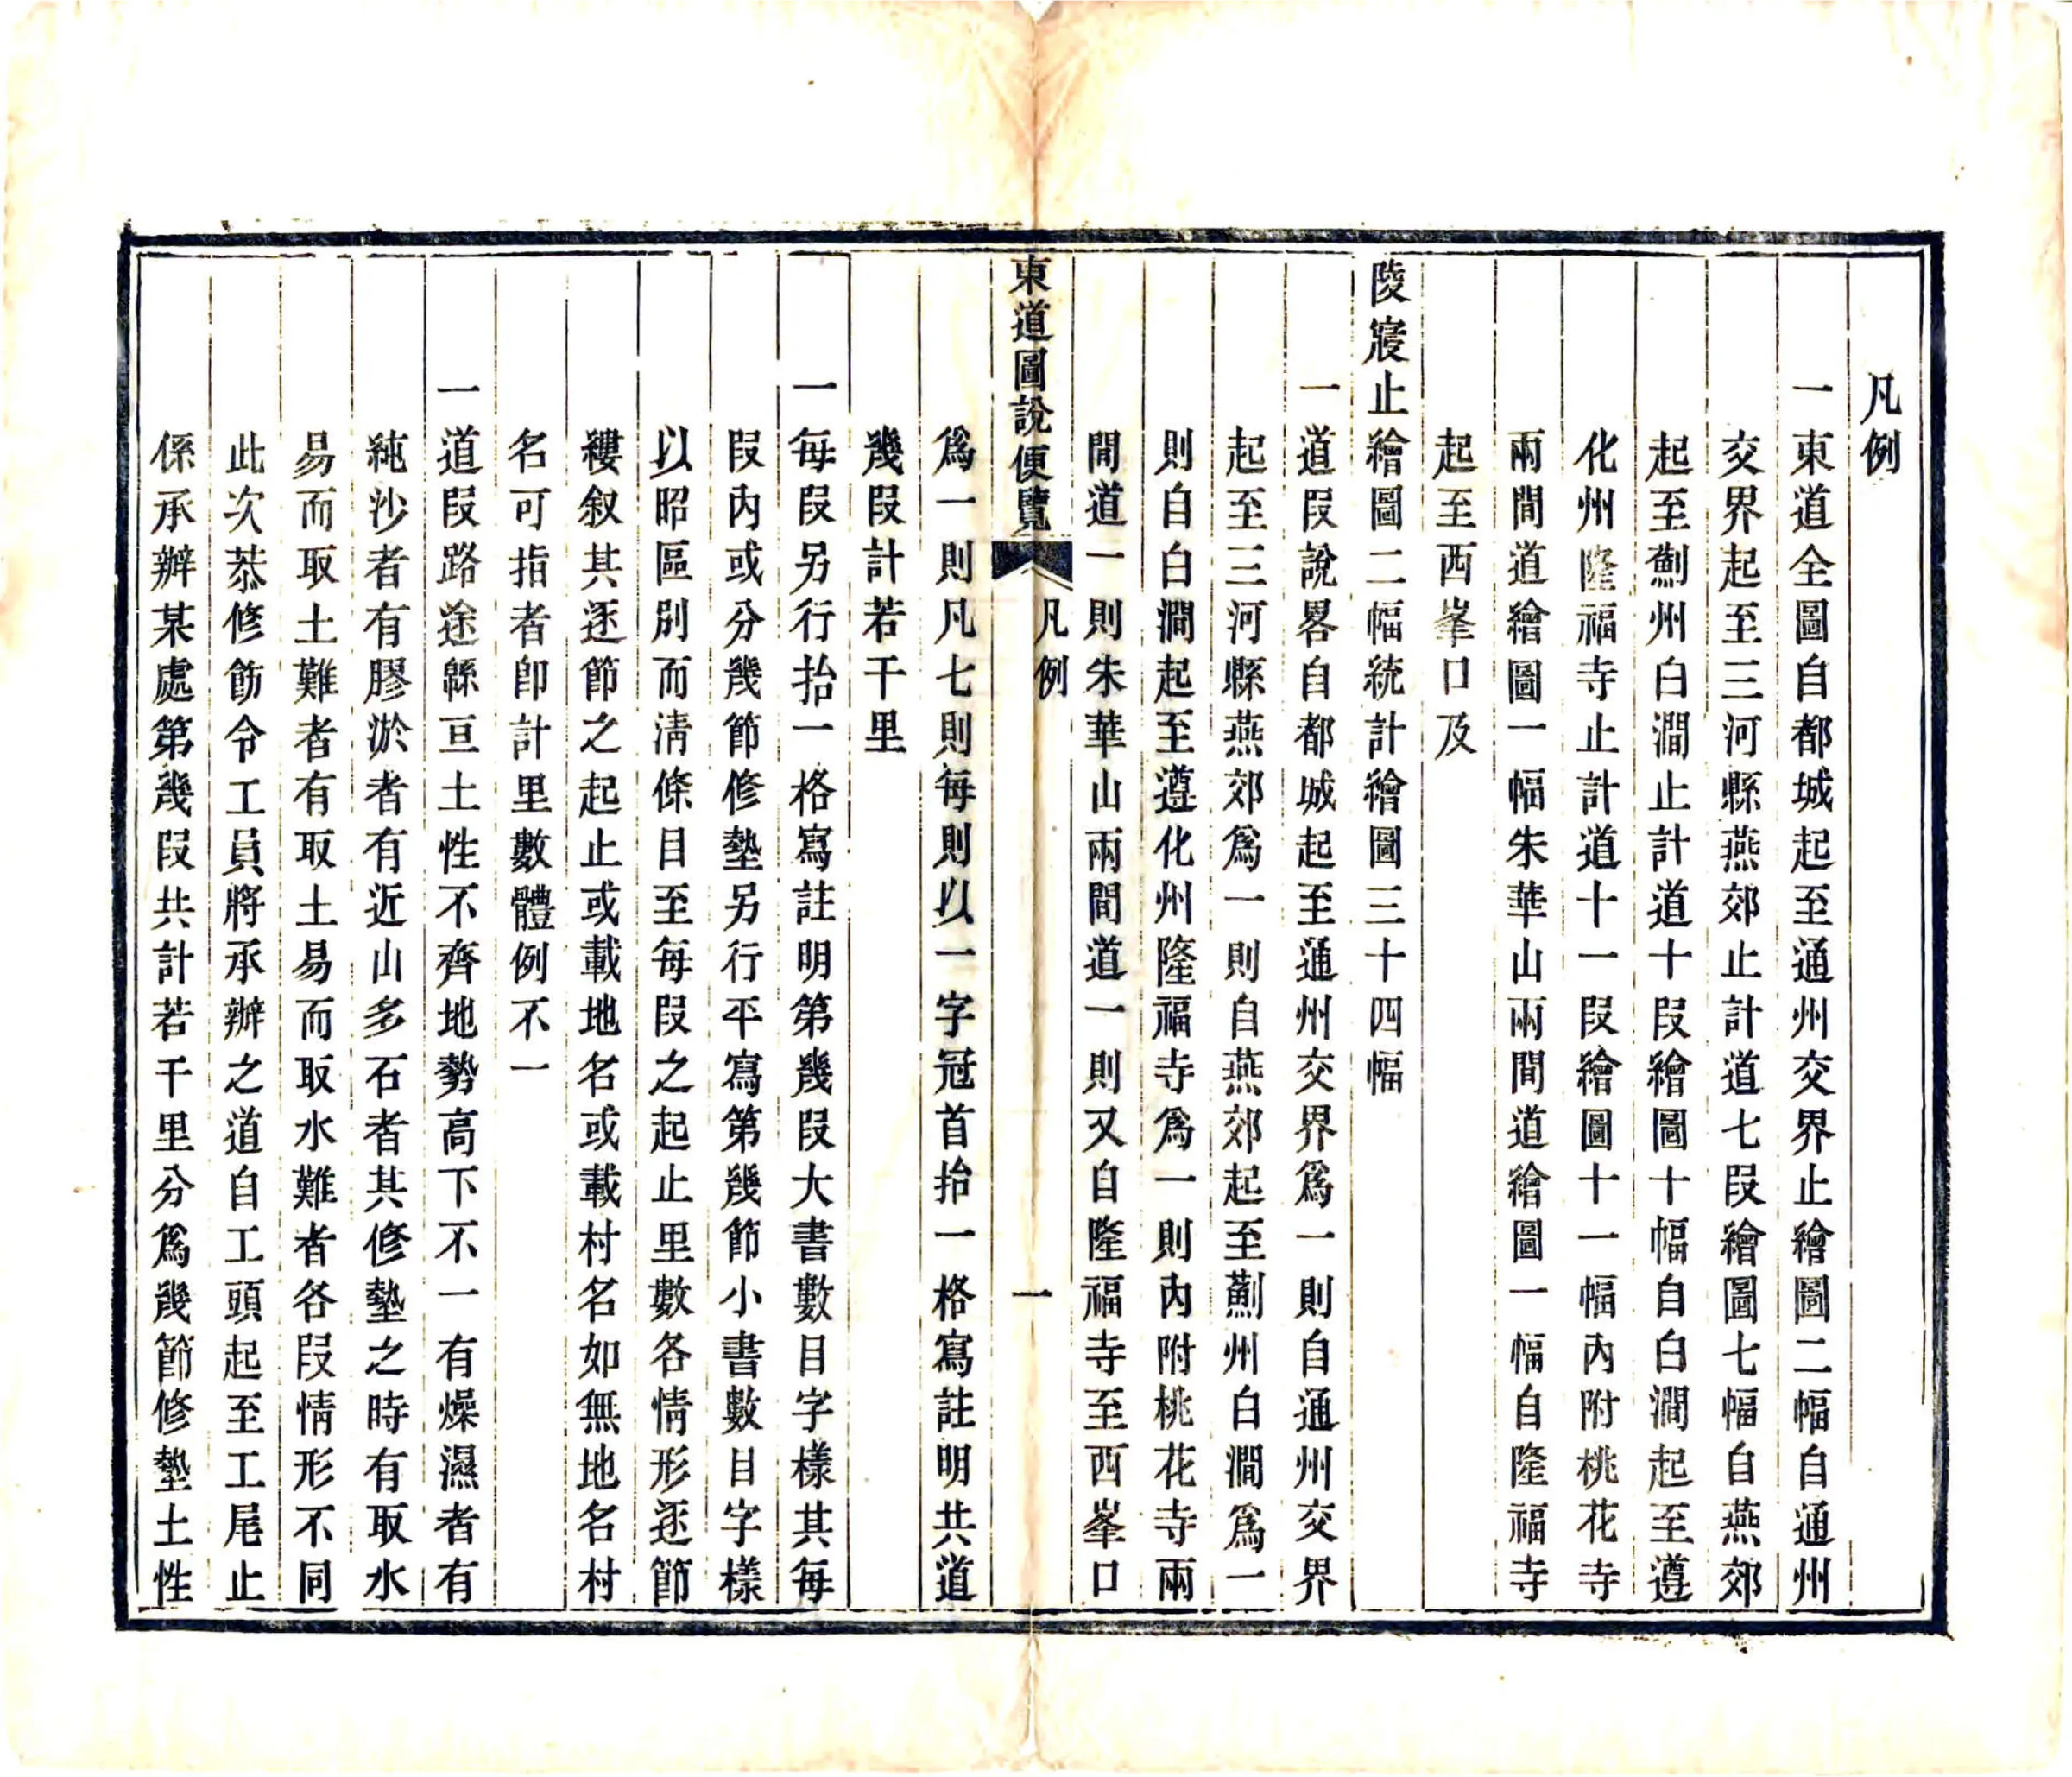 凡例
一東道全圖自都城起至通州交界止繪圖二幅自通州
交界起至三河縣燕郊止計道七段繪圖七幅自燕郊
起至薊州白澗止計道十段繪圖十幅自白澗起至遵
化州隆福寺止計道十一段繪圖十一幅內附桃花寺
兩間道繪圖一幅朱華山兩間道繪圖一幅自隆福寺
起至西峯口及
陵寢止繪圖二幅統計繪圖三十四幅
一道段說畧自都城起至通州交界爲一則自通州交界
起至三河縣燕郊爲一則自燕郊起至薊州白澗爲一
則自白澗起至遵化州隆福寺爲一則內附桃花寺兩
間道一則朱華山兩間道一則又自隆福寺至西峯口
東道圖說便覽
凡例
一
爲一則凡七則每則以一字冠首抬一格寫註明共道
幾段計若干里
一每段另行抬一格寫註明第幾段大書數目字樣其每
段內或分幾節修墊另行平寫第幾節小書數目字樣
以昭區別而清條目至每段之起止里數各情形逐節
縷叙其逐節之起止或載地名或載村名如無地名村
名可指者卽計里數體例不一
一道段路途緜亘土性不齊地勢高下不一有燥濕者有
純沙者有膠淤者有近山多石者其修墊之時有取水
易而取土難者有取土易而取水難者各段情形不同
此次恭修飭令工員將承辦之道自工頭起至工尾止
係承辦某處第幾段共計若干里分爲幾節修墊土性